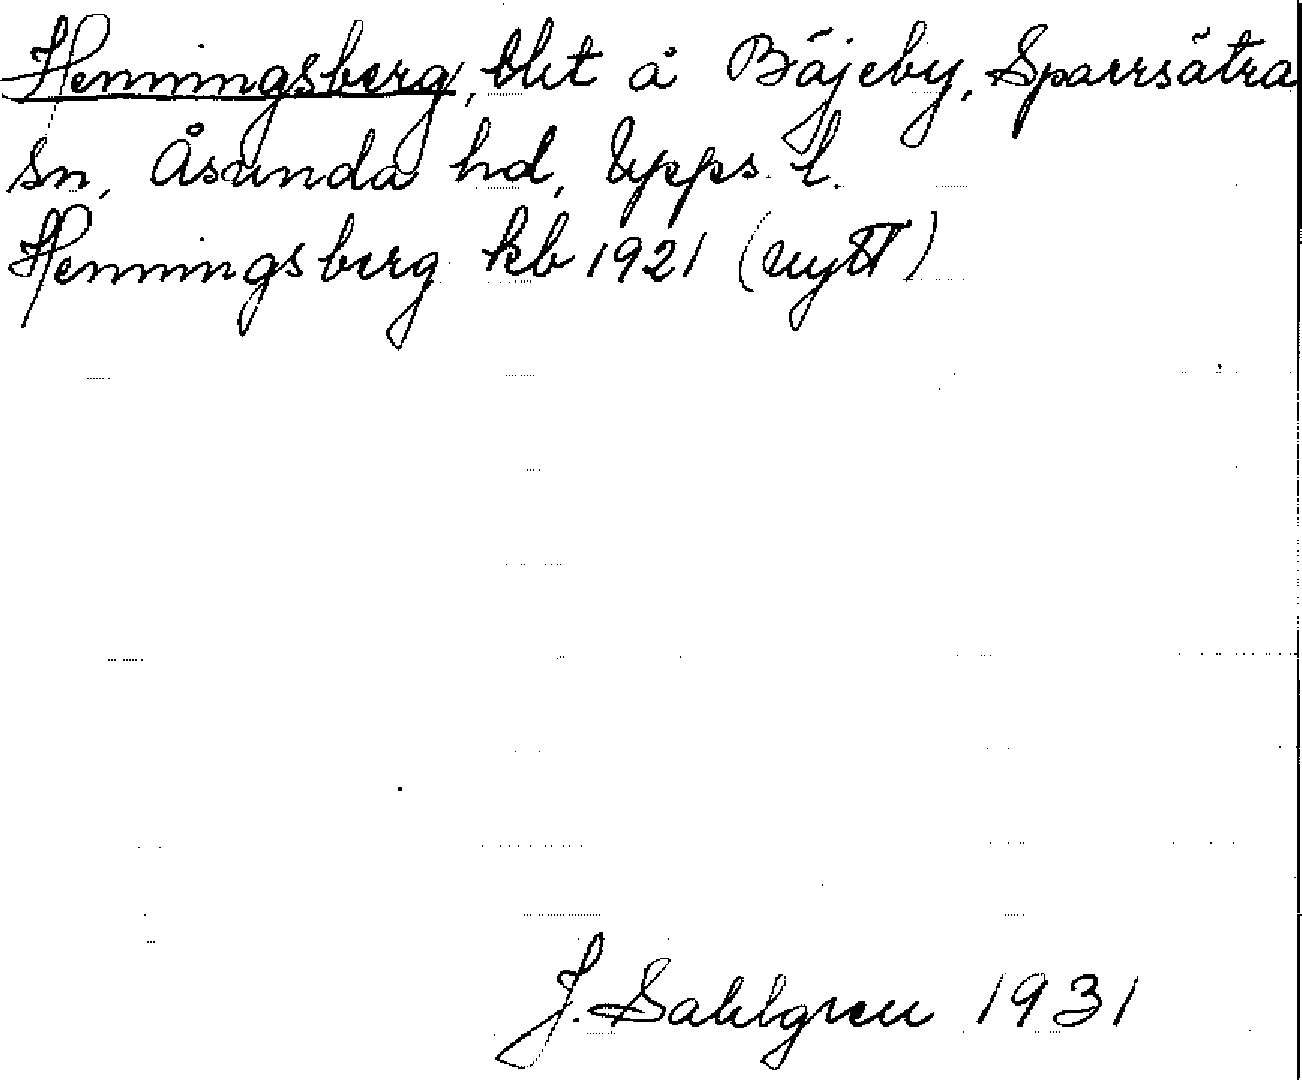 Henningsberg, bht å Bäjeby, Sparrsätra
sn, Åsunda hd, Upps. l.
Henningsberg kb 1921 (nytt)
J. Sahlgren 1931